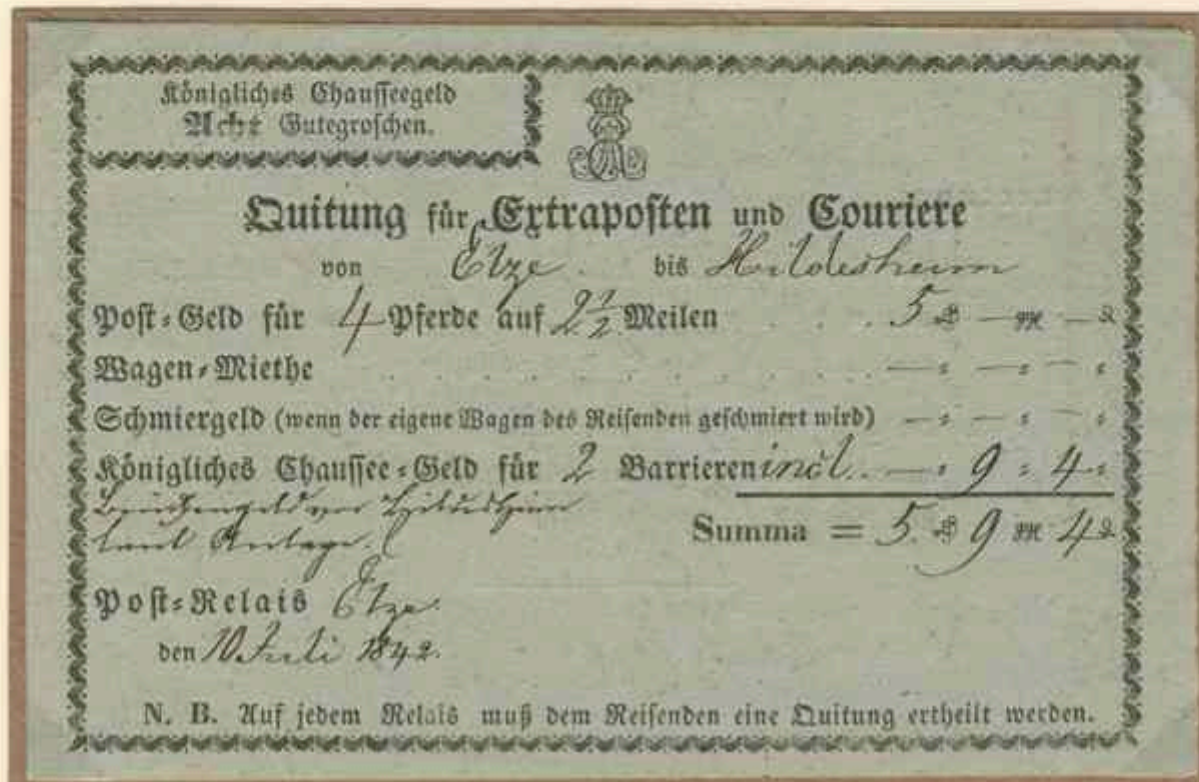 Königliches Chausseegeld
Acht Gutegroschen.
EAR
Quitung für Extraposten und Couriere
von Elze. bis Hildesheim
Post-Geld für 4 Pferde auf 2 1/2 Meilen . . . 5 ₰ — gr — ₰
Wagen-Miethe . . . . . . . . . . — : — : — :
Schmiergeld (wenn der eigene Wagen des Reisenden geschmiert wird) — : — : — :
Königliches Chaussee-Geld für 2 Barrieren incl. — : 9 : 4 :
Brückengeld vor Hildesheim
laut Anlage.
Summa = 5 ₰ 9 gr 4 ₰
Post-Relais Elze.
den 10 Juli 1842.
N. B. Auf jedem Relais muß dem Reisenden eine Quitung ertheilt werden.